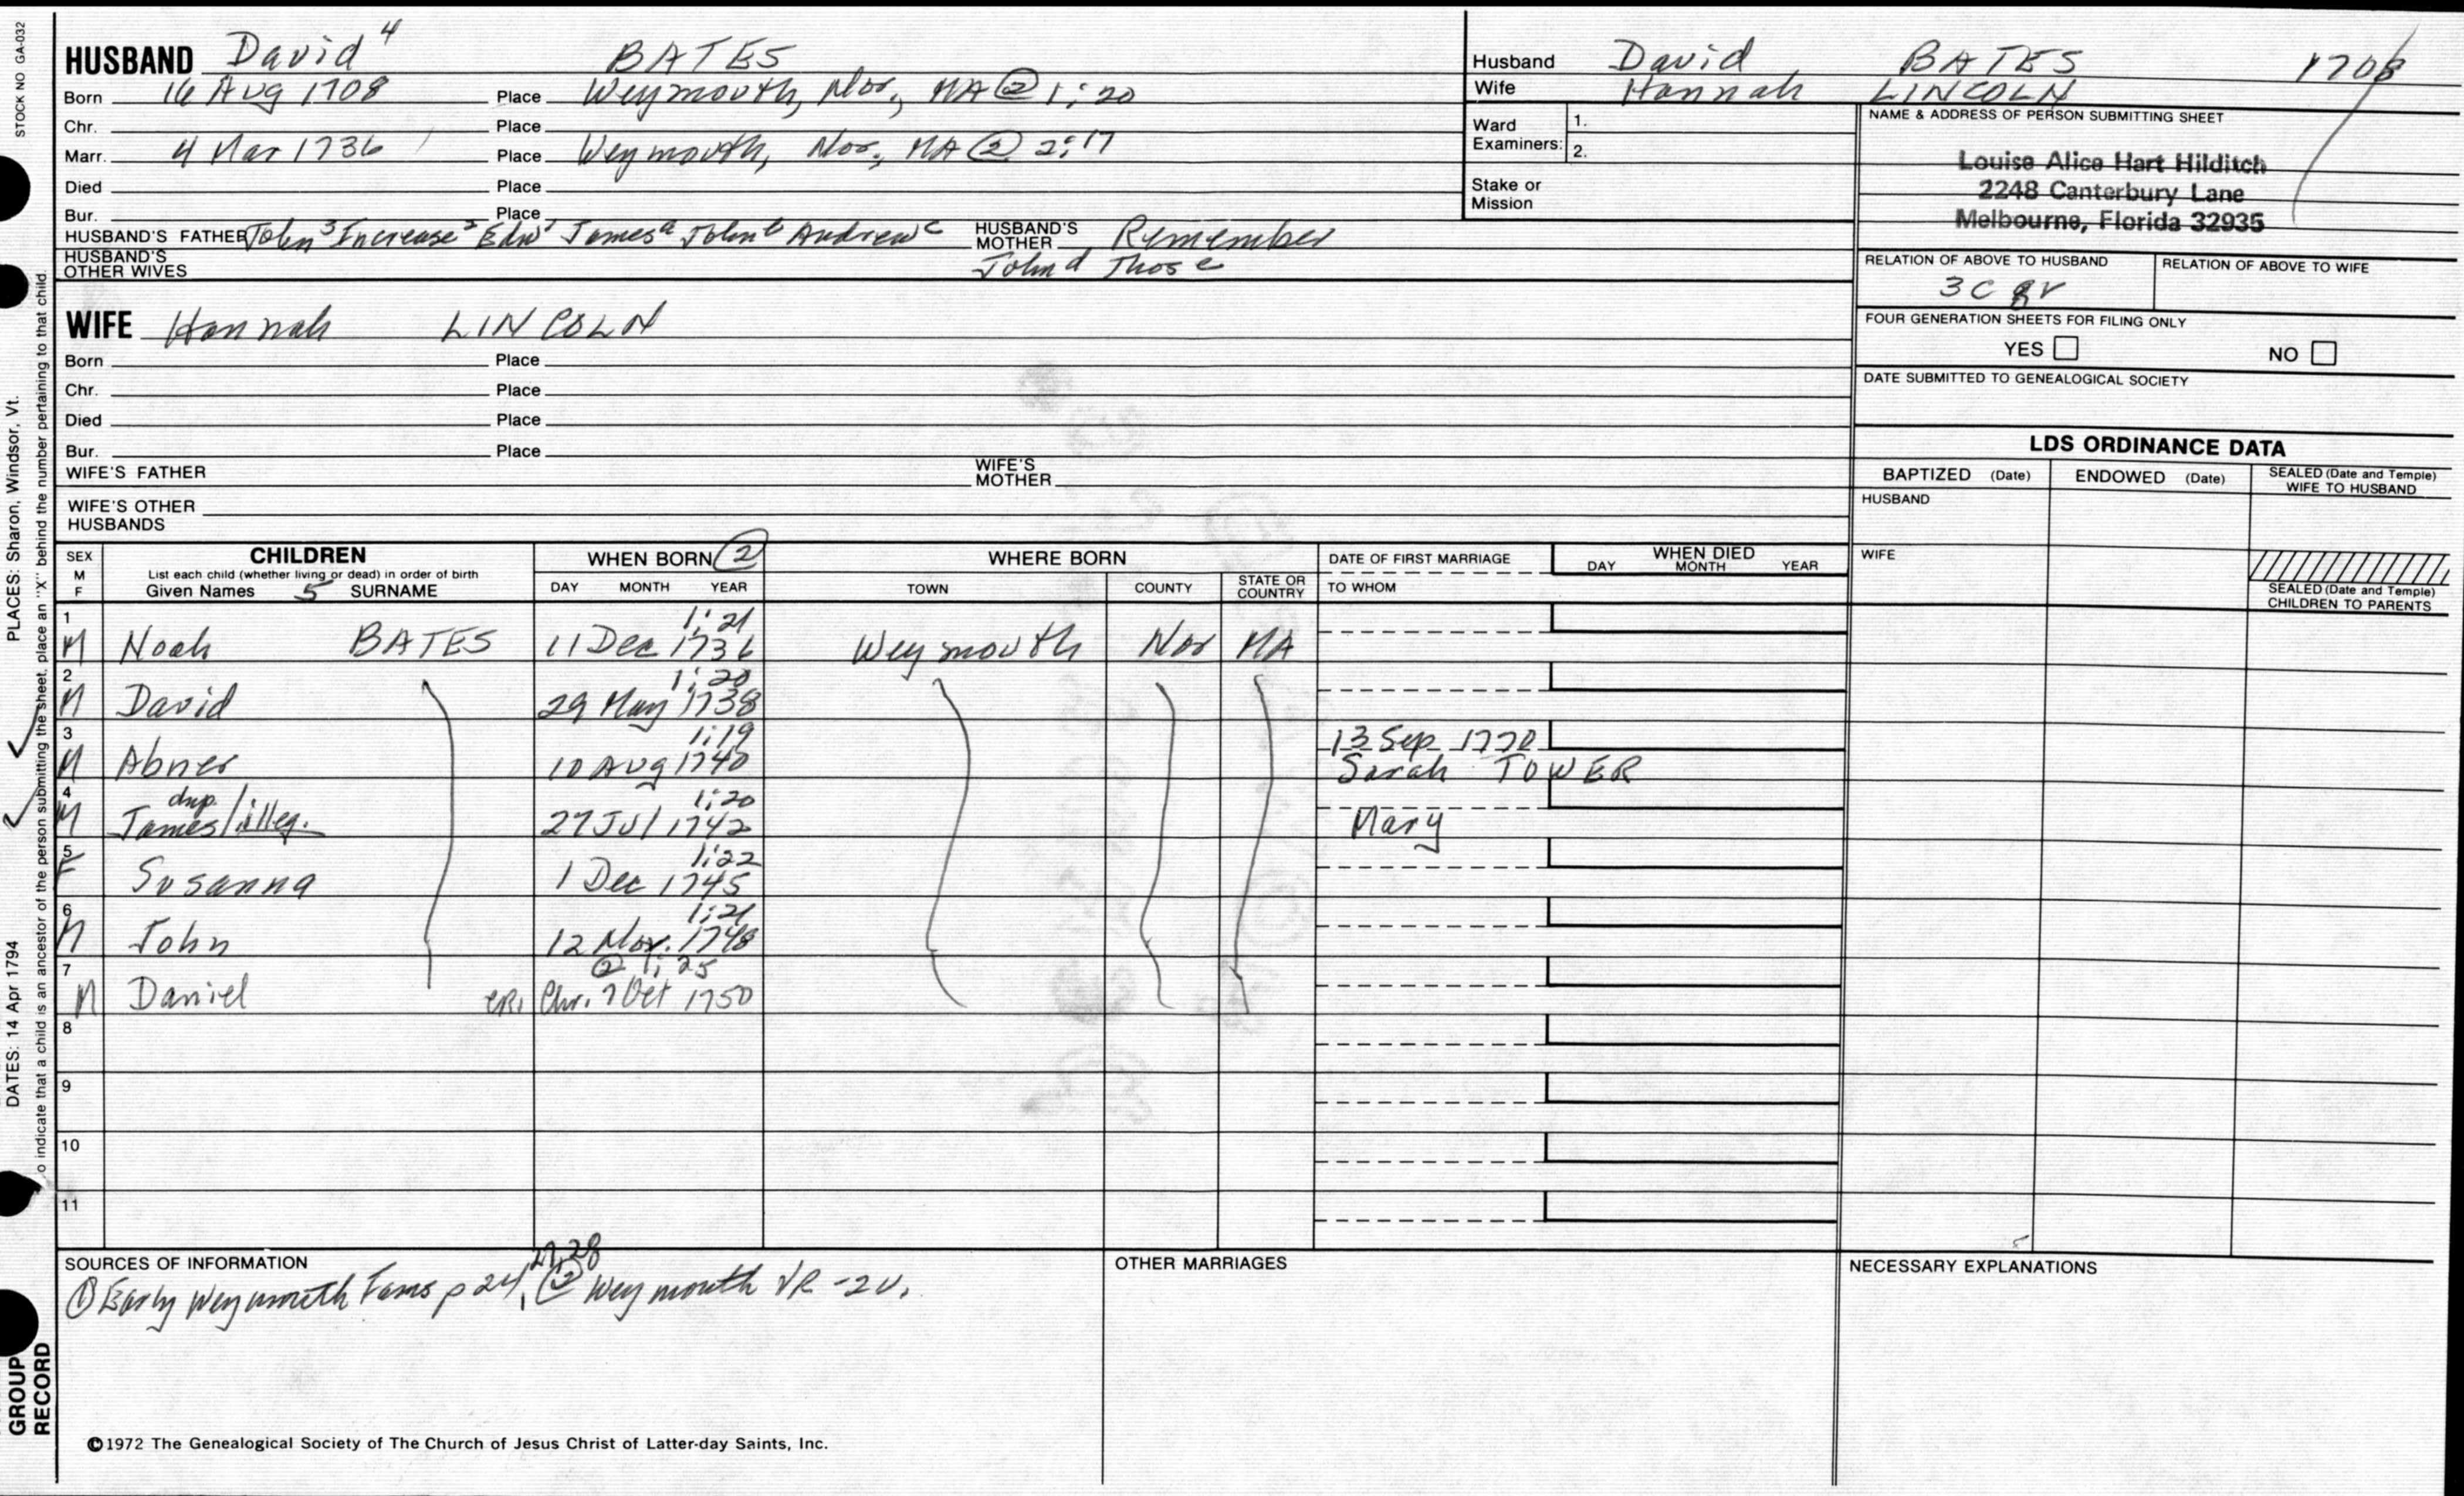 STOCK NO GA-032
HUSBAND David 4 BATES
Born 16 Aug 1708 Place Weymouth, Nor, MA @ 1:20
Chr. Place
Marr. 4 Mar 1736 Place Weymouth, Nor, MA @ 2:17
Died Place
Bur. Place
HUSBAND'S FATHER John 3 Increase 2 Edw 1 James a John b Andrew c HUSBAND'S MOTHER Remember
HUSBAND'S OTHER WIVES John d Thos e
Husband David BATES 1708
Wife Hannah LINCOLN
Ward Examiners: 1.
2.
Stake or Mission
NAME & ADDRESS OF PERSON SUBMITTING SHEET
Louise Alice Hart Hilditch
2248 Canterbury Lane
Melbourne, Florida 32935
RELATION OF ABOVE TO HUSBAND RELATION OF ABOVE TO WIFE
3C 8r
FOUR GENERATION SHEETS FOR FILING ONLY
YES NO
DATE SUBMITTED TO GENEALOGICAL SOCIETY
WIFE Hannah LINCOLN
Born Place
Chr. Place
Died Place
Bur. Place
WIFE'S FATHER WIFE'S MOTHER
WIFE'S OTHER HUSBANDS
LDS ORDINANCE DATA
BAPTIZED (Date) ENDOWED (Date) SEALED (Date and Temple) WIFE TO HUSBAND
HUSBAND
WIFE
SEALED (Date and Temple) CHILDREN TO PARENTS
SEX M F
CHILDREN
List each child (whether living or dead) in order of birth
Given Names 5 SURNAME
WHEN BORN 2
DAY MONTH YEAR
WHERE BORN
TOWN COUNTY STATE OR COUNTRY
DATE OF FIRST MARRIAGE
TO WHOM
WHEN DIED
DAY MONTH YEAR
1 1:21
M Noah BATES 11 Dec 1736 Weymouth Nor MA
2 1:20
M David 29 May 1738
3 1:19 13 Sep 1770
M Abner 10 Aug 1740 Sarah TOWER
4 dup. 1:20
M James/illeg. 27 Jul 1742 Mary
5 1:22
F Susanna 1 Dec 1745
6 1:21
M John 12 Nov. 1748
7 @ 1:25
M Daniel CR1 Chr. 7 Oct 1750
8
9
10
11
SOURCES OF INFORMATION 27,28
① Early Weymouth Fams p 24, ② Weymouth VR -2v.
OTHER MARRIAGES
NECESSARY EXPLANATIONS
©1972 The Genealogical Society of The Church of Jesus Christ of Latter-day Saints, Inc.
PLACES: Sharon, Windsor, Vt.
DATES: 14 Apr 1794
o indicate that a child is an ancestor of the person submitting the sheet, place an "X" behind the number pertaining to that child.
GROUP RECORD